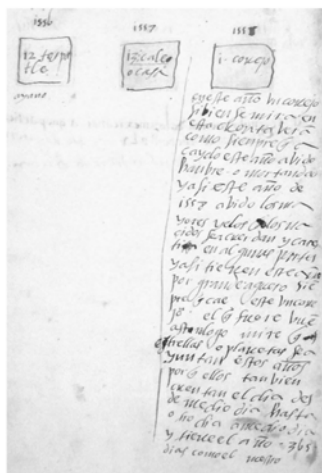 1556 1557 1558
12. tecpa
tle.
13. calco
o casa
1. conejo
eneste año vn conejo
si bien se mira en
esta cuenta se vera
como siempre q̃ a
caydo este año abido
hanbre o mortandad
y asi este año de
1558 abido los ma
yores yelos q̃ los na
cidos se acuerdan y cares
tia en algunas partes
y asi tienen ditecan
por gran aguero sie
pre q̃ cae este vn cone
jo. el q̃ fuere buē
astrologo mire q̃ es
trellas o planetas sea
yuntan estos años
por q̃ ellos tanbien
cuentan el dia des
de medio dia hasta
otro dia a medio dia
y tiene el año 365
dias como el nuestro